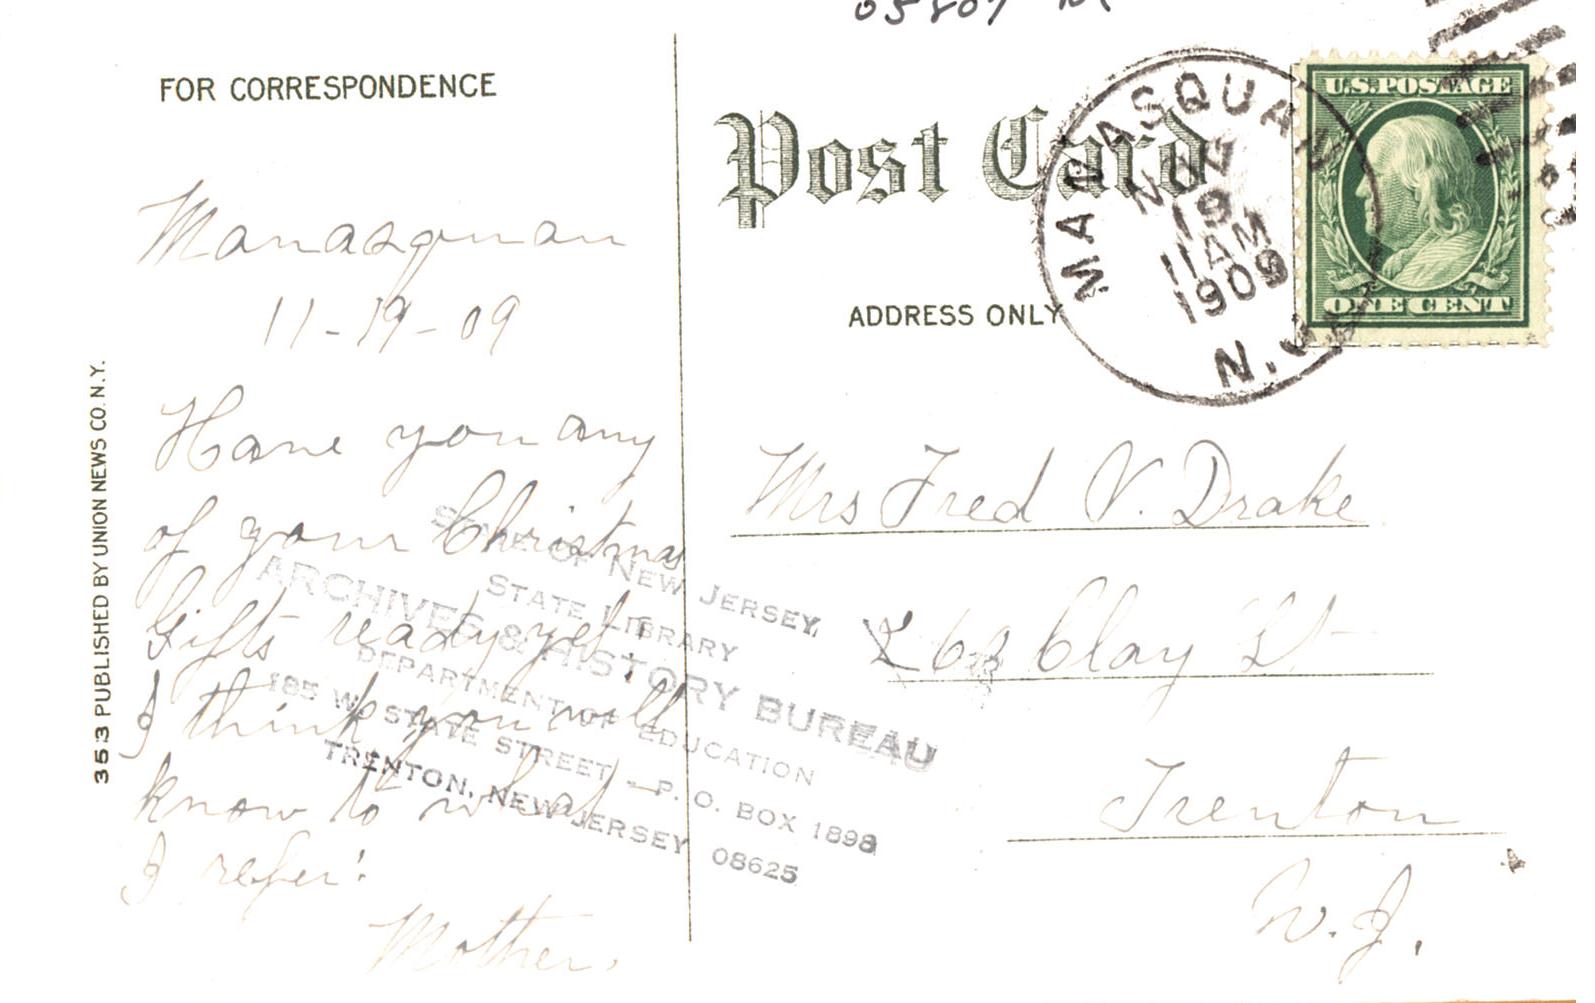 FOR CORRESPONDENCE
Manasquan
11-19-09
Have you any
of your Christmas
Gifts ready yet!
I think you will
know to what
I refer!
Mother.
353 PUBLISHED BY UNION NEWS CO. N.Y.
Post Card
ADDRESS ONLY
MANASQUAN
NOV
19
11 AM
1909
N.J.
U.S. POSTAGE
ONE CENT
Mrs Fred V. Drake
Clay St
Trenton
N.J.
STATE OF NEW JERSEY
STATE LIBRARY
ARCHIVES & HISTORY BUREAU
DEPARTMENT OF EDUCATION
185 W. STATE STREET — P. O. BOX 1898
TRENTON, NEW JERSEY 08625